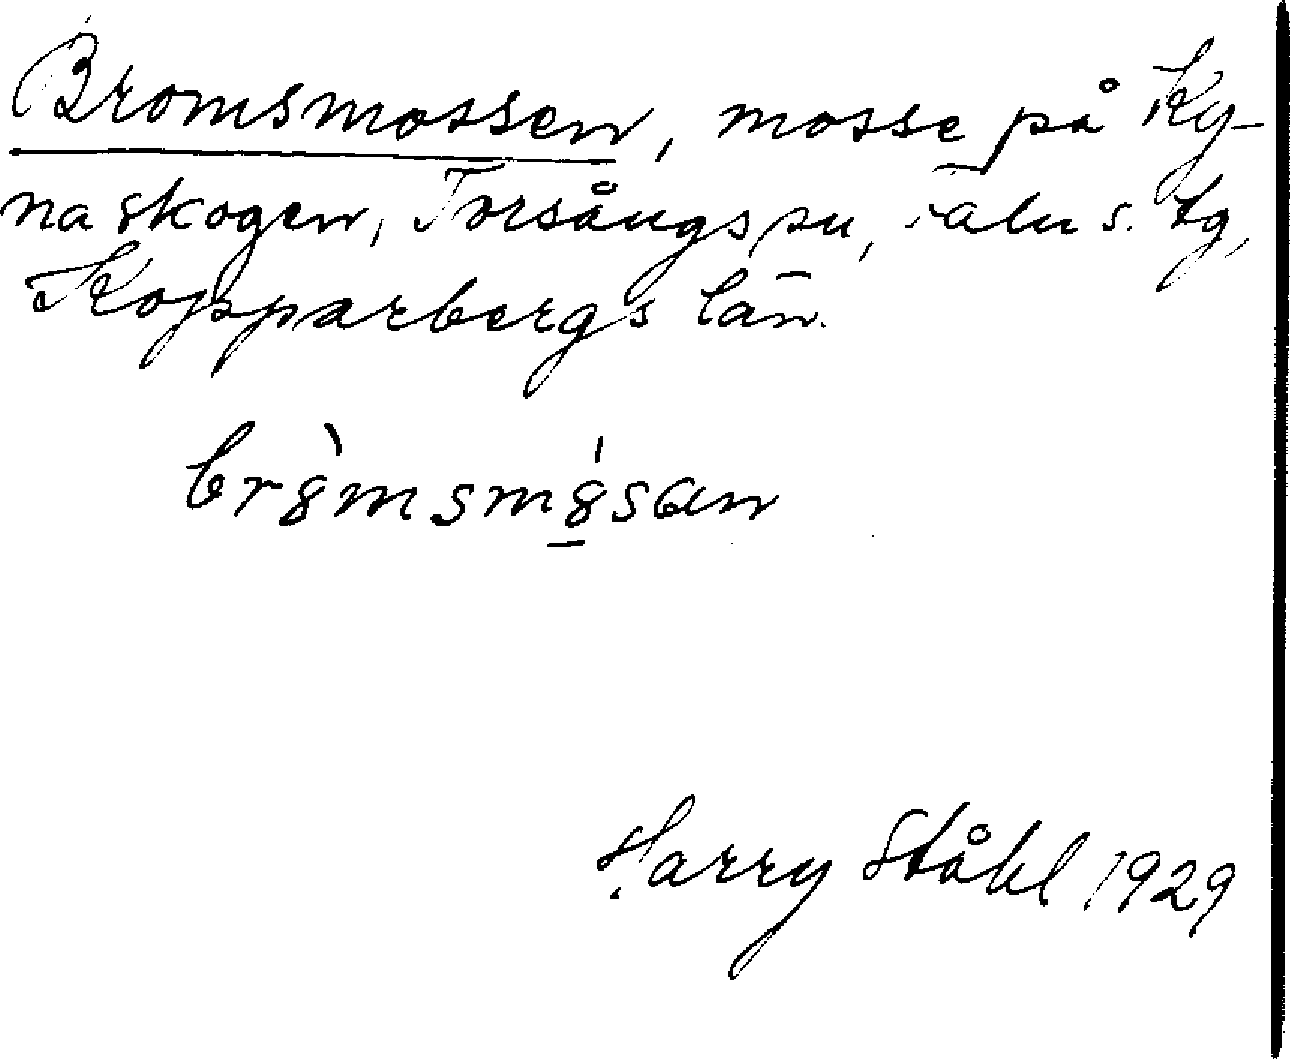 Bromsmossen, mosse på Ky-
naskogen, Torsångs sn, Falu s. tg,
Kopparbergs län.
br8̀msm8́san
Harry Ståhl 1929